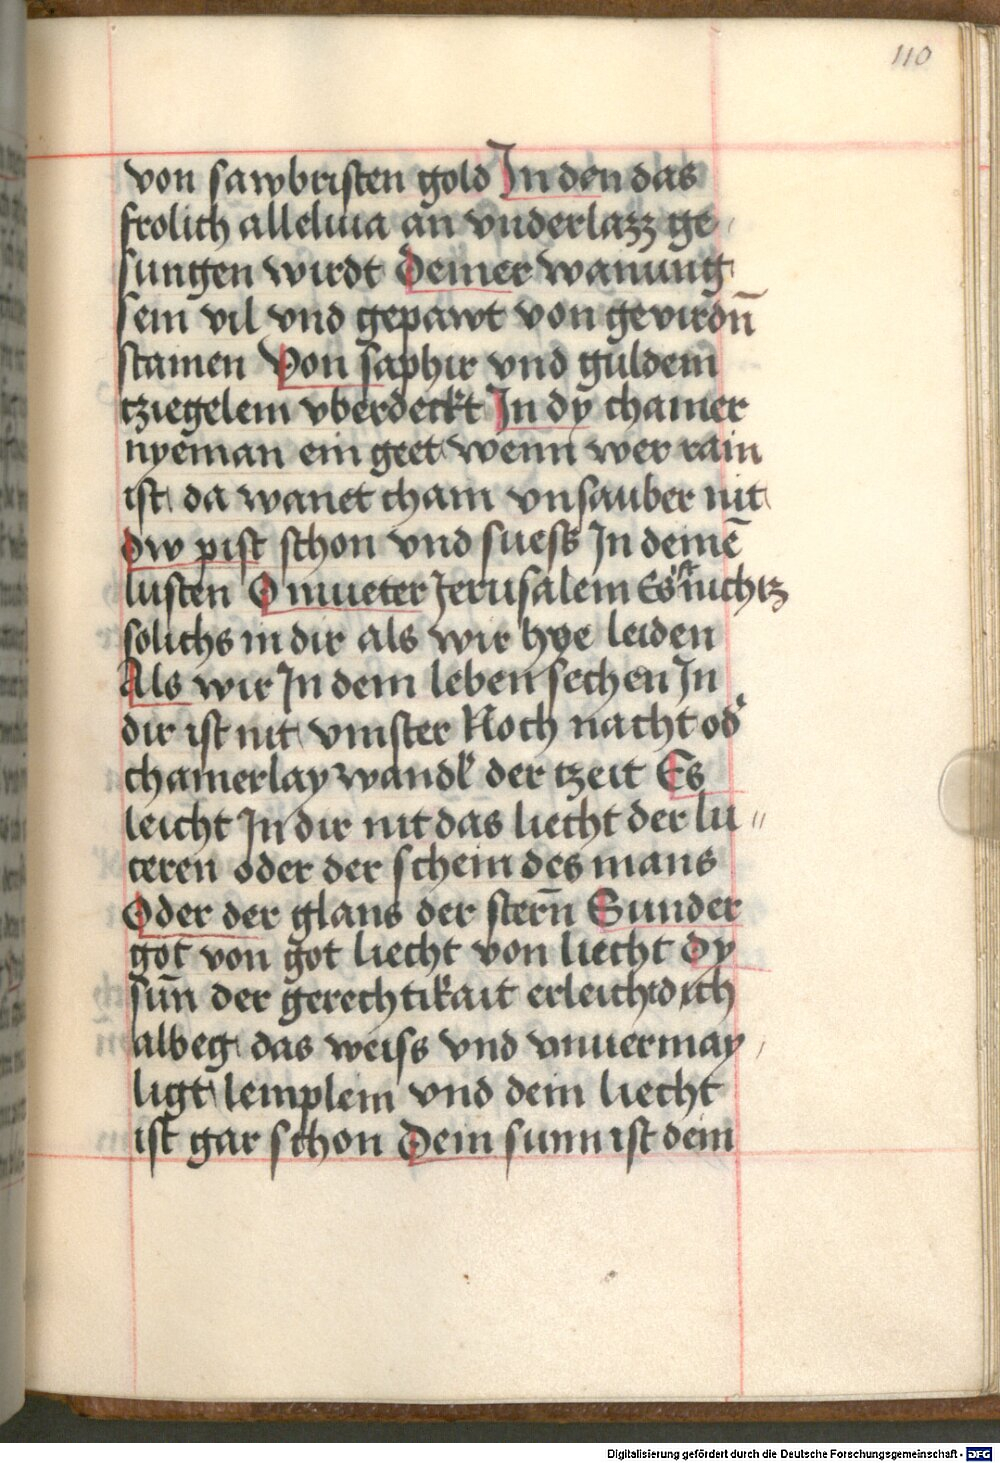 110
von sawbristen gold In den das
frolich alleluia an vnderlazz ge
sungen wirdt Deiner wanung
sein vil vnd gepawt von gevirdn̄
stainen Von saphir vnd guldem
tziegelem vberdeckt In dy chamer
nyeman ein geet wenn wer rain
ist da wanet cham vnsauber nit
Dw pist schon vnd suess In deinē
lusten O mueter Jerusalem Es ist nichtz
solichs in dir als wir hye leiden
Als wir In dem leben sechen In
dir ist nit vinster Noch nacht od'
chainerlay wandl' der tzeit Es
leicht In dir nit das liecht der lu〃
teren oder der schein des mans
Oder der glans der stern̄ Sunder
got von got liecht von liecht Dy
sūn der gerechtikait erleicht dich
albeg das weiss vnd vnuermay/
ligt lemplein vnd dem liecht
ist gar schon Dein sunn ist dein
Digitalisierung gefördert durch die Deutsche Forschungsgemeinschaft - DFG